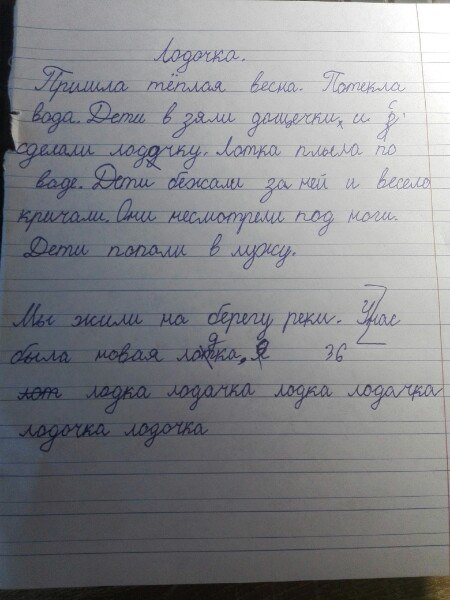 Лодочка.
Пришла тёплая весна. Потекла
вода. Дети в зяли дощечки, и
сделали лодочку. Лотка плыла по
ваде. Дети бежали за ней и весело
кричали. Они несмотрели под ноги.
Дети попали в лужу.
Мы жили на берегу реки. Унас
была новая лодка. 36
лот лодка лодачка лодка лодачка
лодочка лодочка